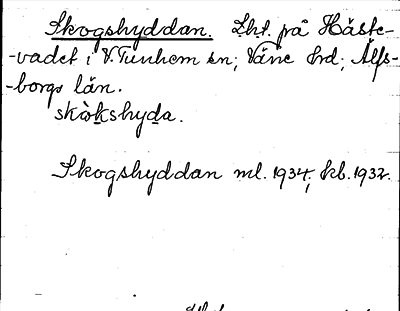 Skogshyddan. Lht. på Håste-
-vadet i V. Tunhem sn; Väne hrd; Älfs-
-borgs län.
skòkshyda.
Skogshyddan ml. 1934; kb. 1932.